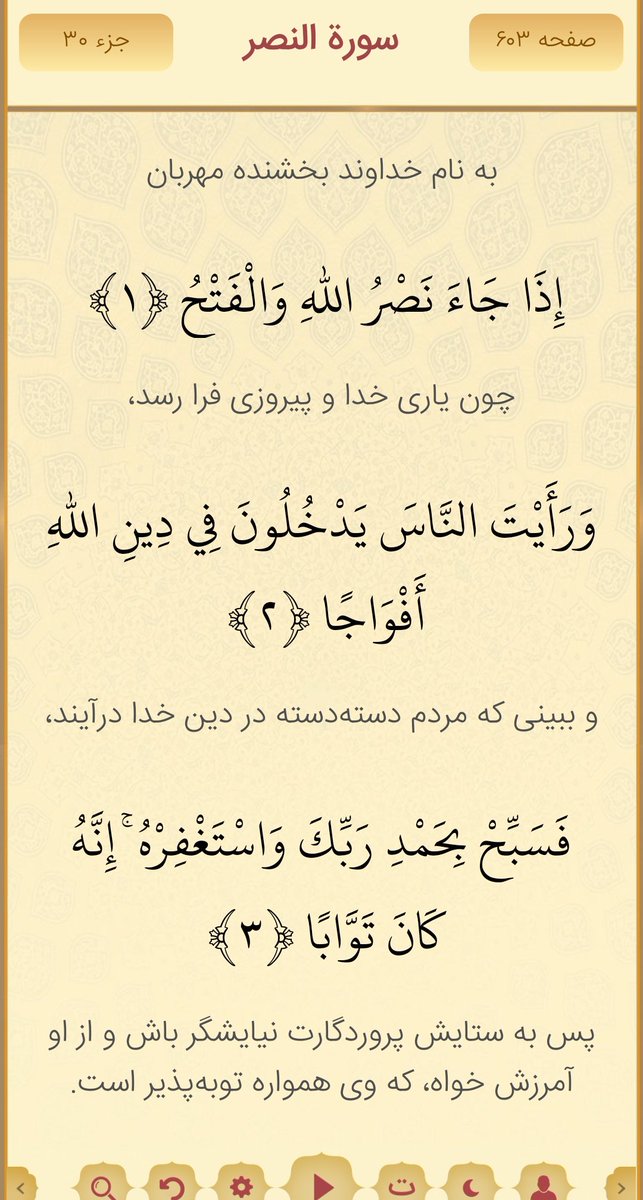 صفحه ۶۰۳
سورة النصر
جزء ۳۰
به نام خداوند بخشنده مهربان
إِذَا جَاءَ نَصْرُ اللهِ وَالْفَتْحُ ﴿١﴾
چون یاری خدا و پیروزی فرا رسد،
وَرَأَيْتَ النَّاسَ يَدْخُلُونَ فِي دِينِ اللهِ
أَفْوَاجًا ﴿٢﴾
و ببینی که مردم دسته‌دسته در دین خدا درآیند،
فَسَبِّحْ بِحَمْدِ رَبِّكَ وَاسْتَغْفِرْهُ ۚ إِنَّهُ
كَانَ تَوَّابًا ﴿٣﴾
پس به ستایش پروردگارت نیایشگر باش و از او
آمرزش خواه، که وی همواره توبه‌پذیر است.
ت